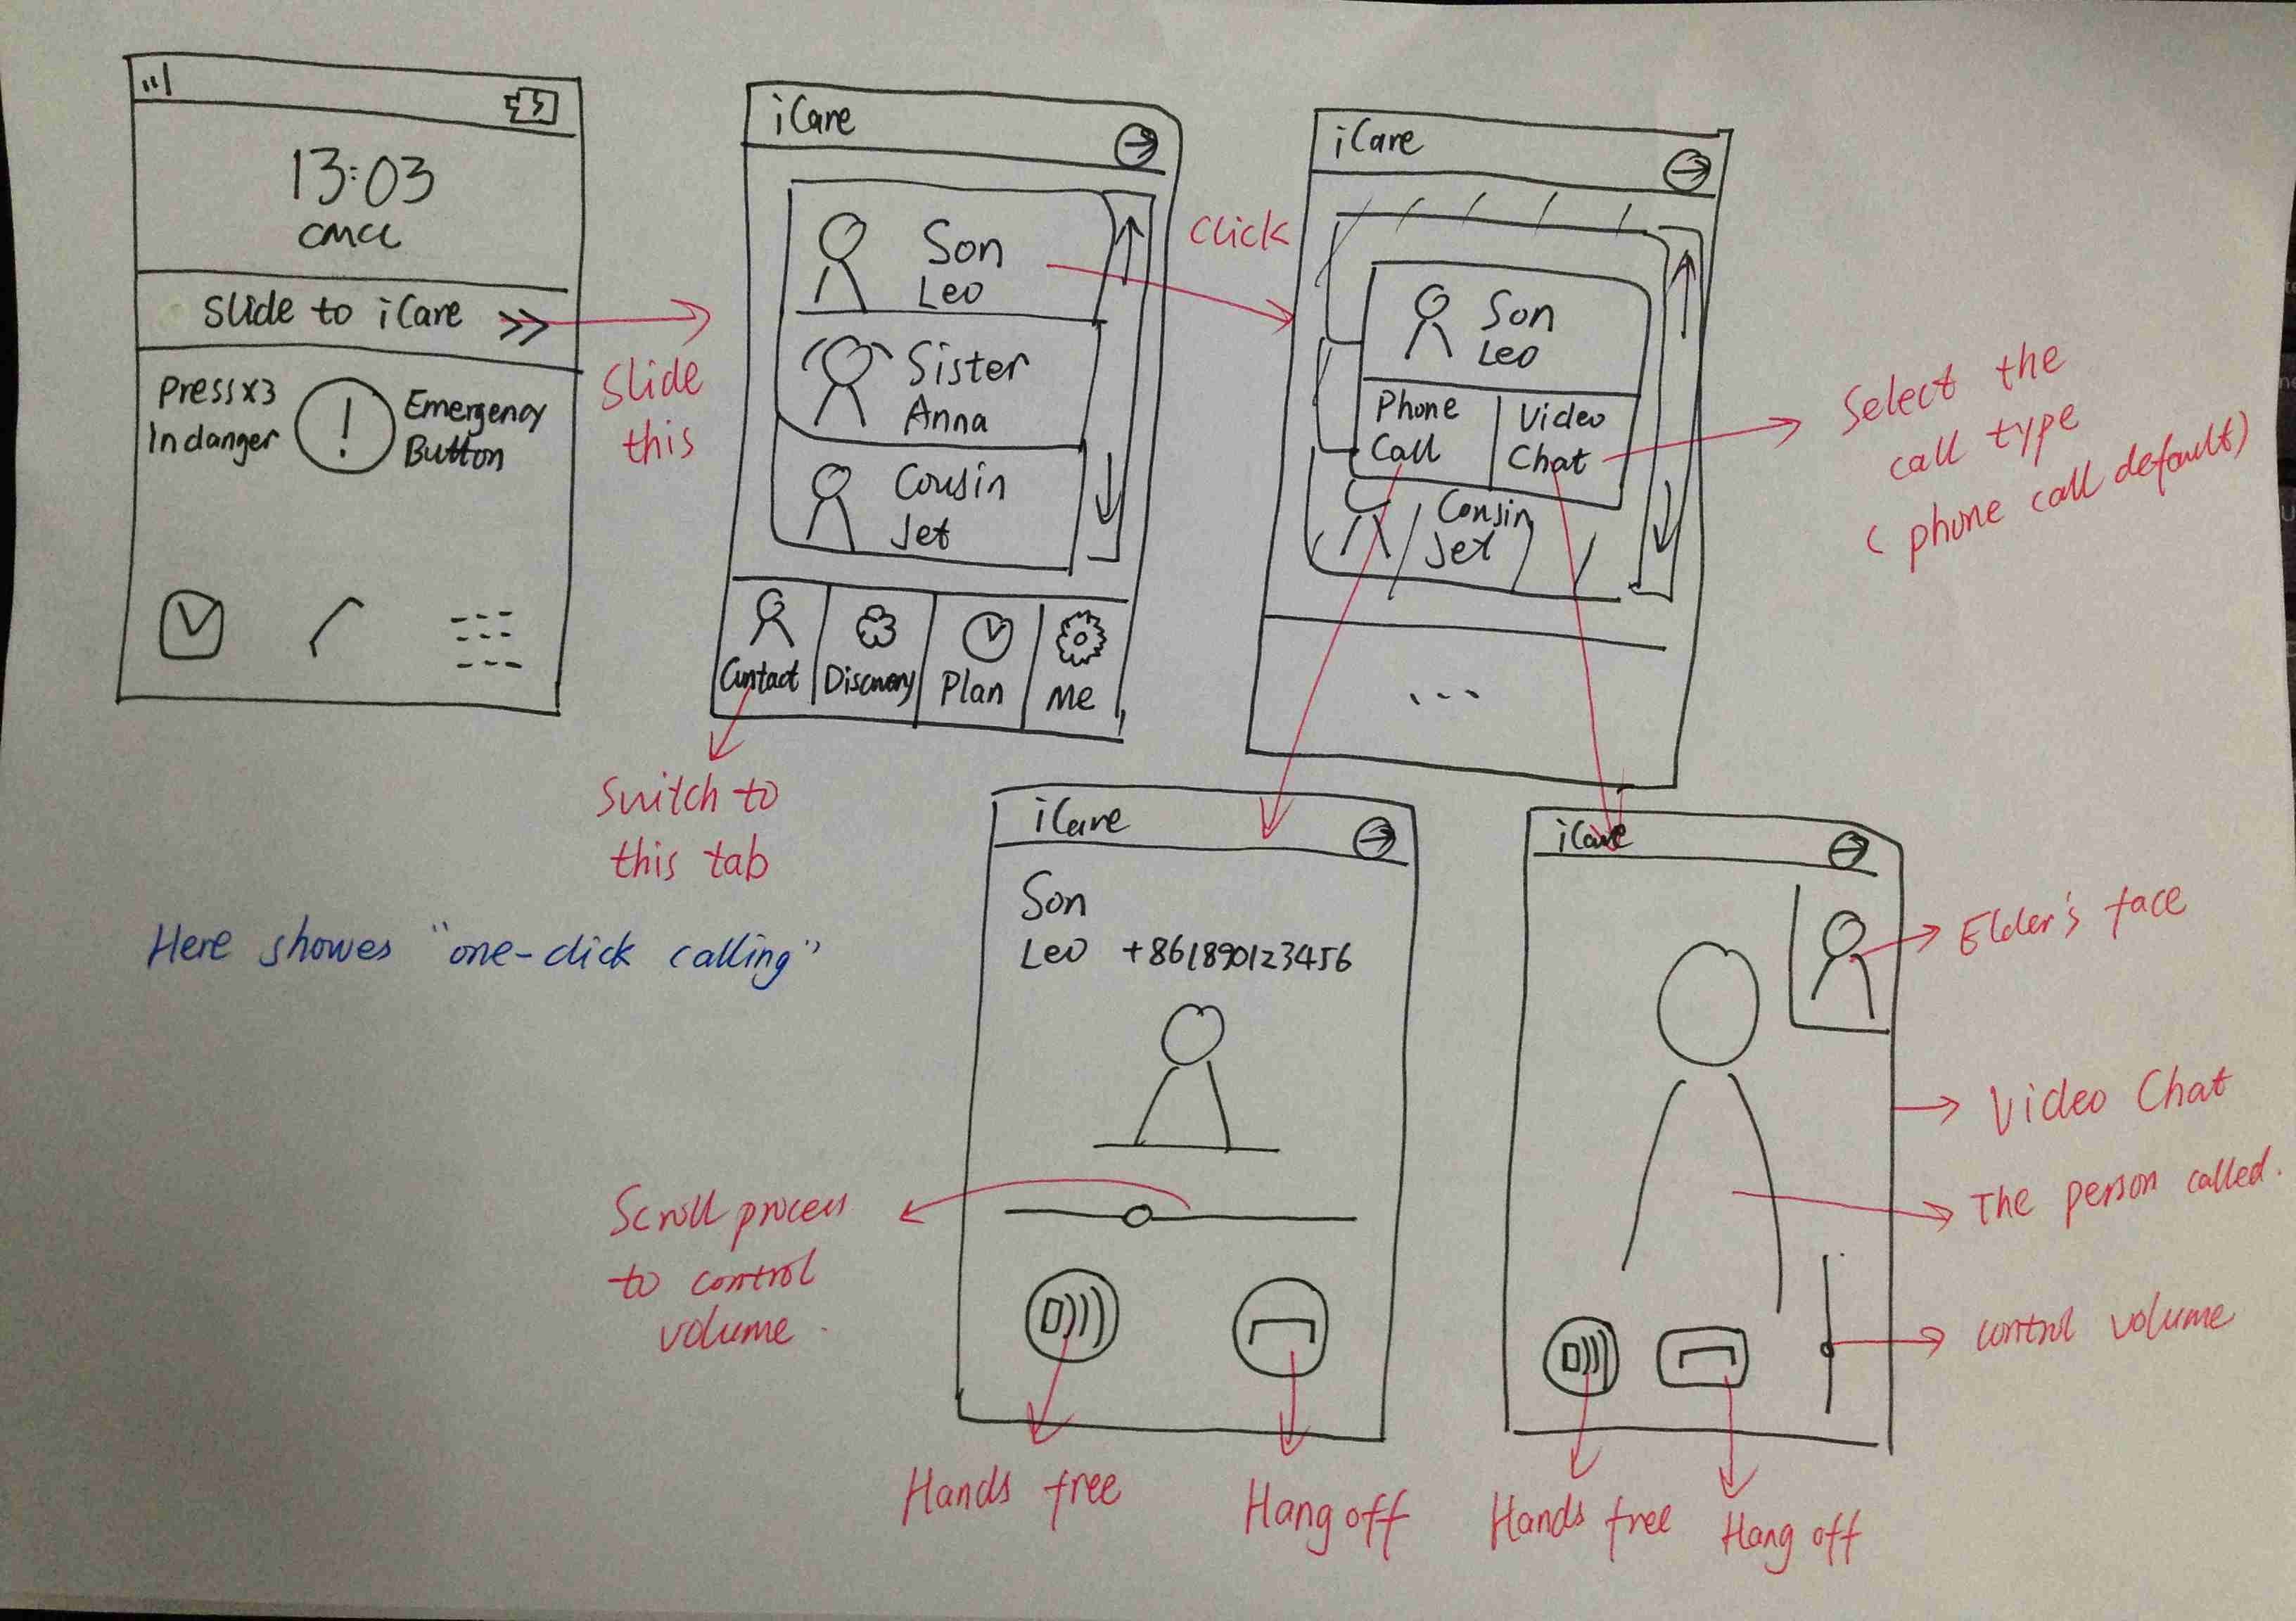 13:03
CMCC
Slide to iCare >>
Press×3
In danger
!
Emergency
Button
Slide
this
iCare
Son
Leo
Sister
Anna
Cousin
Jet
Contact
Discovery
Plan
Me
Switch to
this tab
Click
iCare
Son
Leo
Phone
Call
Video
Chat
Cousin
Jet
...
Select the
call type
( phone call default)
Here showes "one-click calling"
iCare
Son
Leo +861890123456
Scroll process
to control
volume.
Hands free
Hang off
iCare
Elder's face
Video Chat
The person called.
control volume
Hands free
Hang off